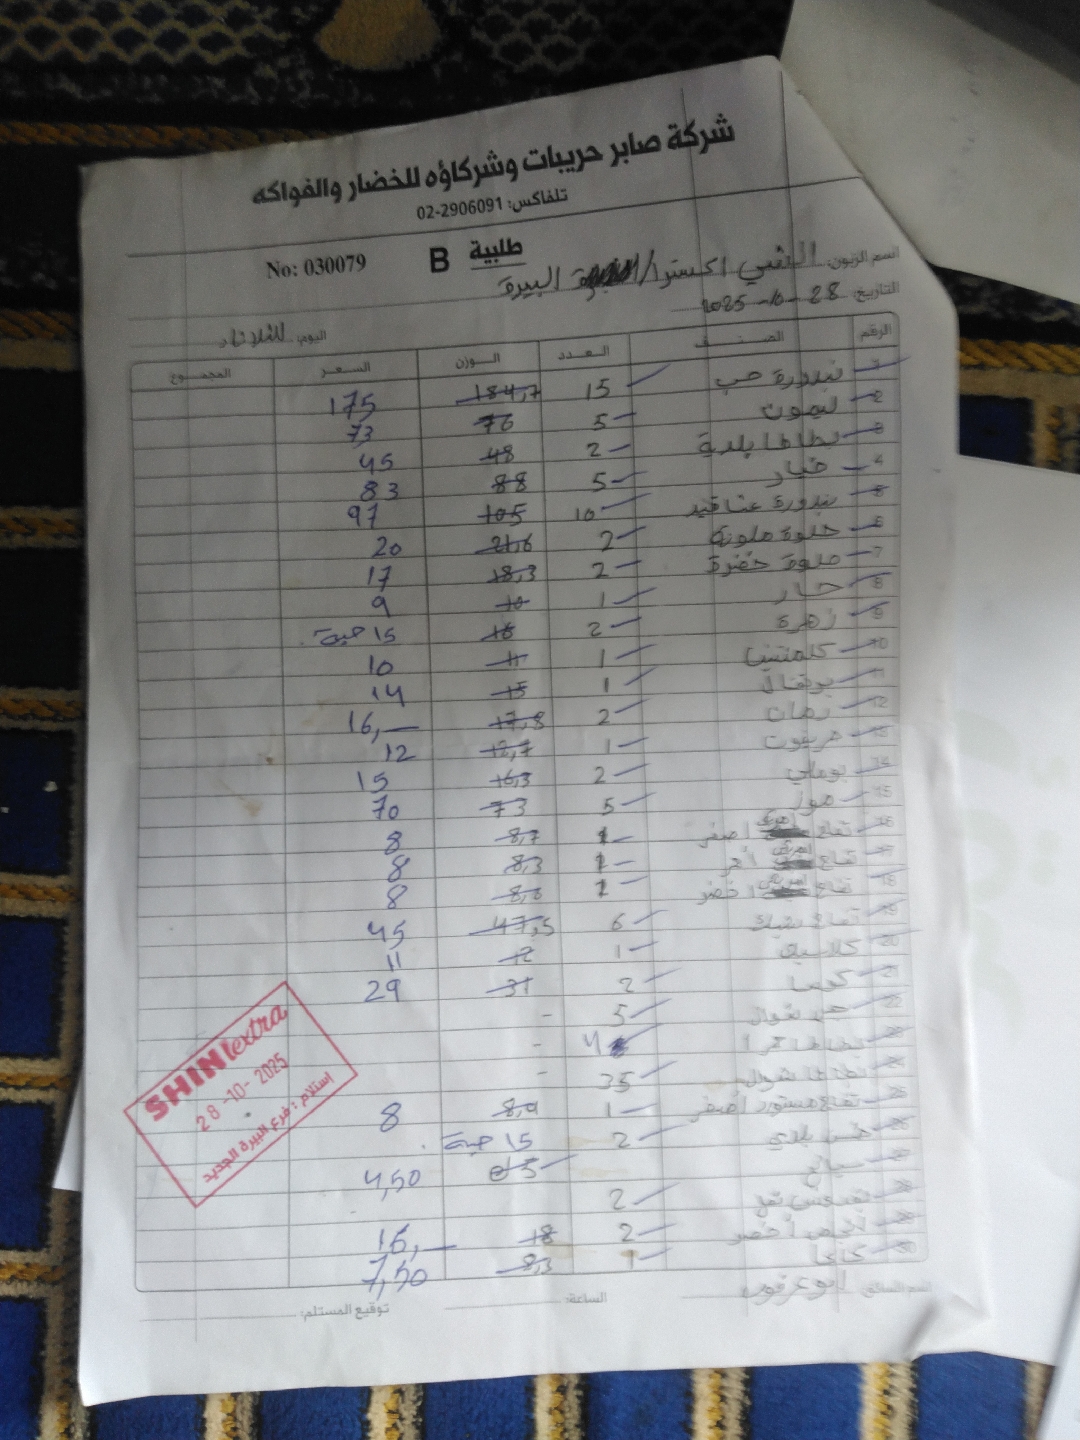 شركة صابر حريبات وشركاؤه للخضار والفواكه
تلفاكس: 02-2906091
No: 030079 B طلبية
اسم الزبون: الشني اكسترا / البيرة
التاريخ: 28-10-2025
اليوم: الثلاثاء
الرقم الصنف العدد الوزن السعر المجموع
1 بندورة حب 15 184,7 175
2 ليمون 5 76 73
3 بطاطا بلدية 2 48 45
4 خيار 5 88 83
5 بندورة عناقيد 10 105 97
6 حلوة ملونة 2 21,6 20
7 حلوة خضرة 2 18,3 17
8 حار 1 10 9
9 زهرة 2 16 15 حبة
10 كلمنتينا 1 11 10
11 برتقال 1 15 14
12 رمان 2 17,8 16,—
13 1 12,7 12
14 بوملي 2 16,3 15
15 موز 5 73 70
16 تفاح اصفر 1 8,7 8
17 تفاح أحمر 1 8,3 8
18 تفاح اخضر 1 8,6 8
19 تفاح 6 47,5 45
20 1 12 11
21 كوسا 2 31 29
22 شوال 5 -
23 بطاطا 4 -
24 بطاطا شوال 35 -
25 تفاح مستورد أصفر 1 8,9 8
26 خس بلدي 2 15 حبة
27 5 4,50
28 2
29 أخضر 2 18 16,—
30 كاكا 1 8,3 7,50
اسم السائق:
الساعة:
توقيع المستلم:
SHINI extra
28-10-2025
استلام: فرع البيرة الجديد